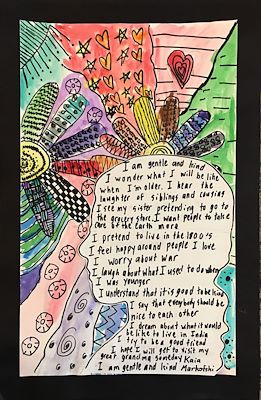 I am gentle and kind
I wonder what I will be like
when I'm older. I hear the
laughter of siblings and cousins
I see my sister pretending to go to
the grocery store. I want people to take
care of the earth more
I pretend to live in the 1800's
I feel happy around people I love
I worry about war
I laugh about what I used to do when
I was younger
I understand that it is good to be kind
I say that everybody should be
nice to each other
I dream about what it would
be like to live in India
I try to be a good friend
I hope I will get to visit my
great grandma someday Kaia
I am gentle and kind